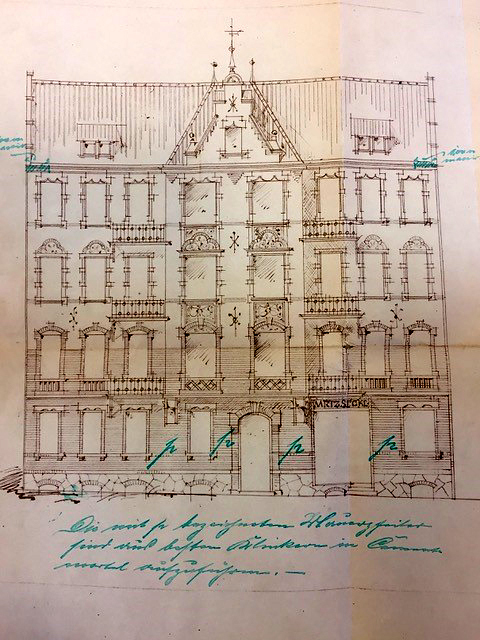 p p p p
Die mit p bezeichneten Mauerpfeiler
sind aus besten Klinkern in Cement-
mörtel aufzuführen. —